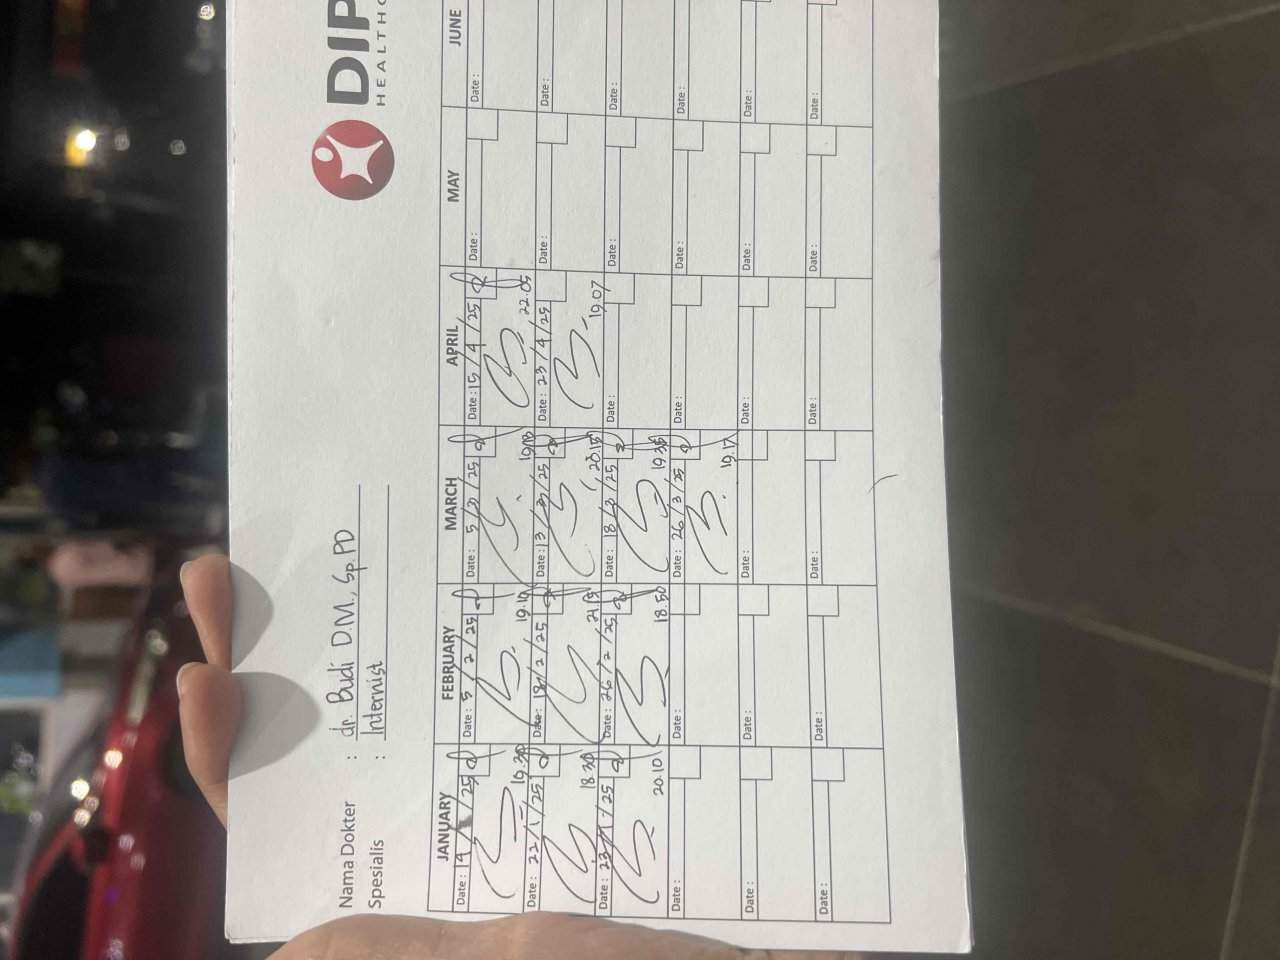 DIP
HEALTHC
Nama Dokter : dr. Budi D.M., Sp.PD
Spesialis : Internist
JANUARY FEBRUARY MARCH APRIL MAY JUNE
Date: 14/1/25 Date: 5/2/25 Date: 5/3/25 Date: 15/4/25 Date: Date:
19.30 19.10 22.05
Date: 22/1/25 Date: 18/2/25 Date: 13/3/25 Date: 23/4/25 Date: Date:
18.30 20.15 19.07
Date: 23/1/25 Date: 26/2/25 Date: 18/3/25 Date: Date: Date:
20.10 18.50 19.35
Date: Date: Date: 26/3/25 Date: Date: Date:
19.17
Date: Date: Date: Date: Date: Date:
Date: Date: Date: Date: Date: Date: